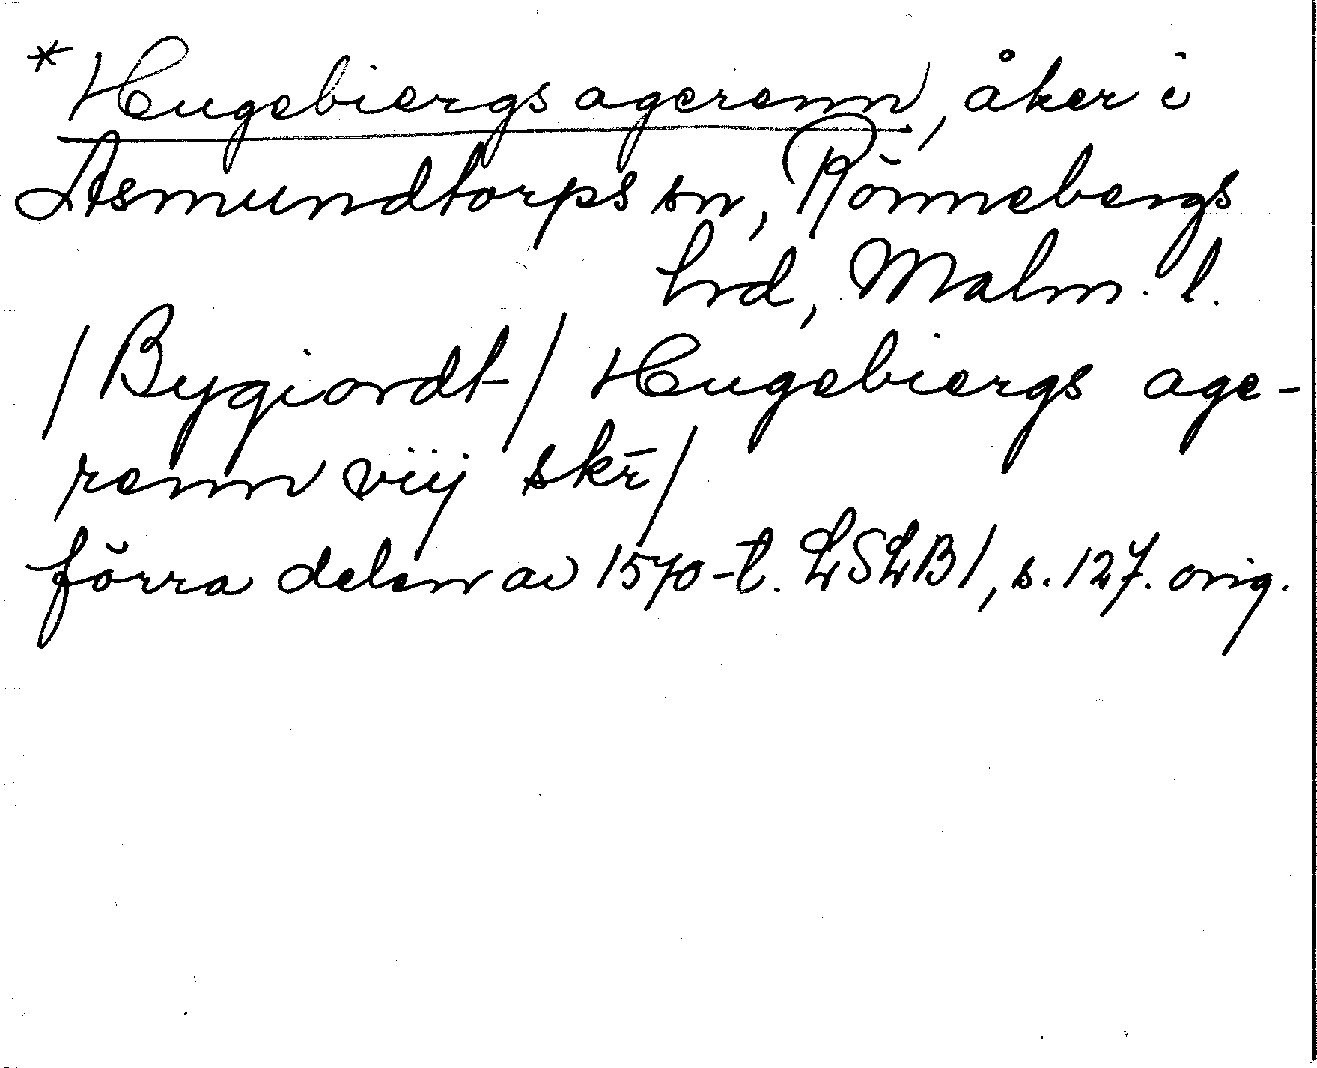 *Hugebiergs agerenn, åker i
Asmundtorps sn, Rönnebergs
hrd, Malm. l.
/Bygiordt/ Hugebiergs age-
renn viij skr̄/
förra delen av 1570-t. LSLB1, s. 127. orig.